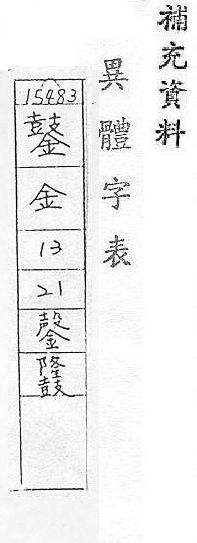 補充資料
異體字表
15483
金
13
21
鏧